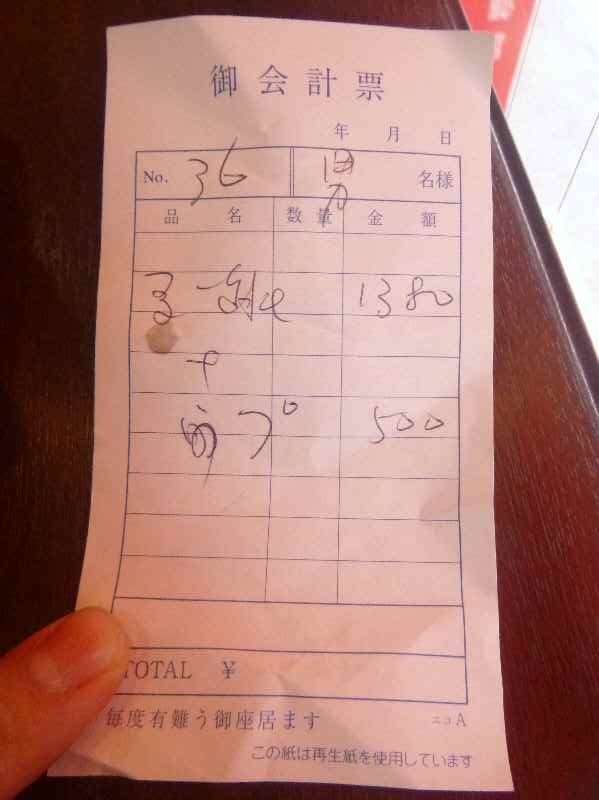 御会計票
年 月 日
No. 36 男 名様
品名 数量 金額
1380
+
500
TOTAL ¥
毎度有難う御座居ます
エコA
この紙は再生紙を使用しています